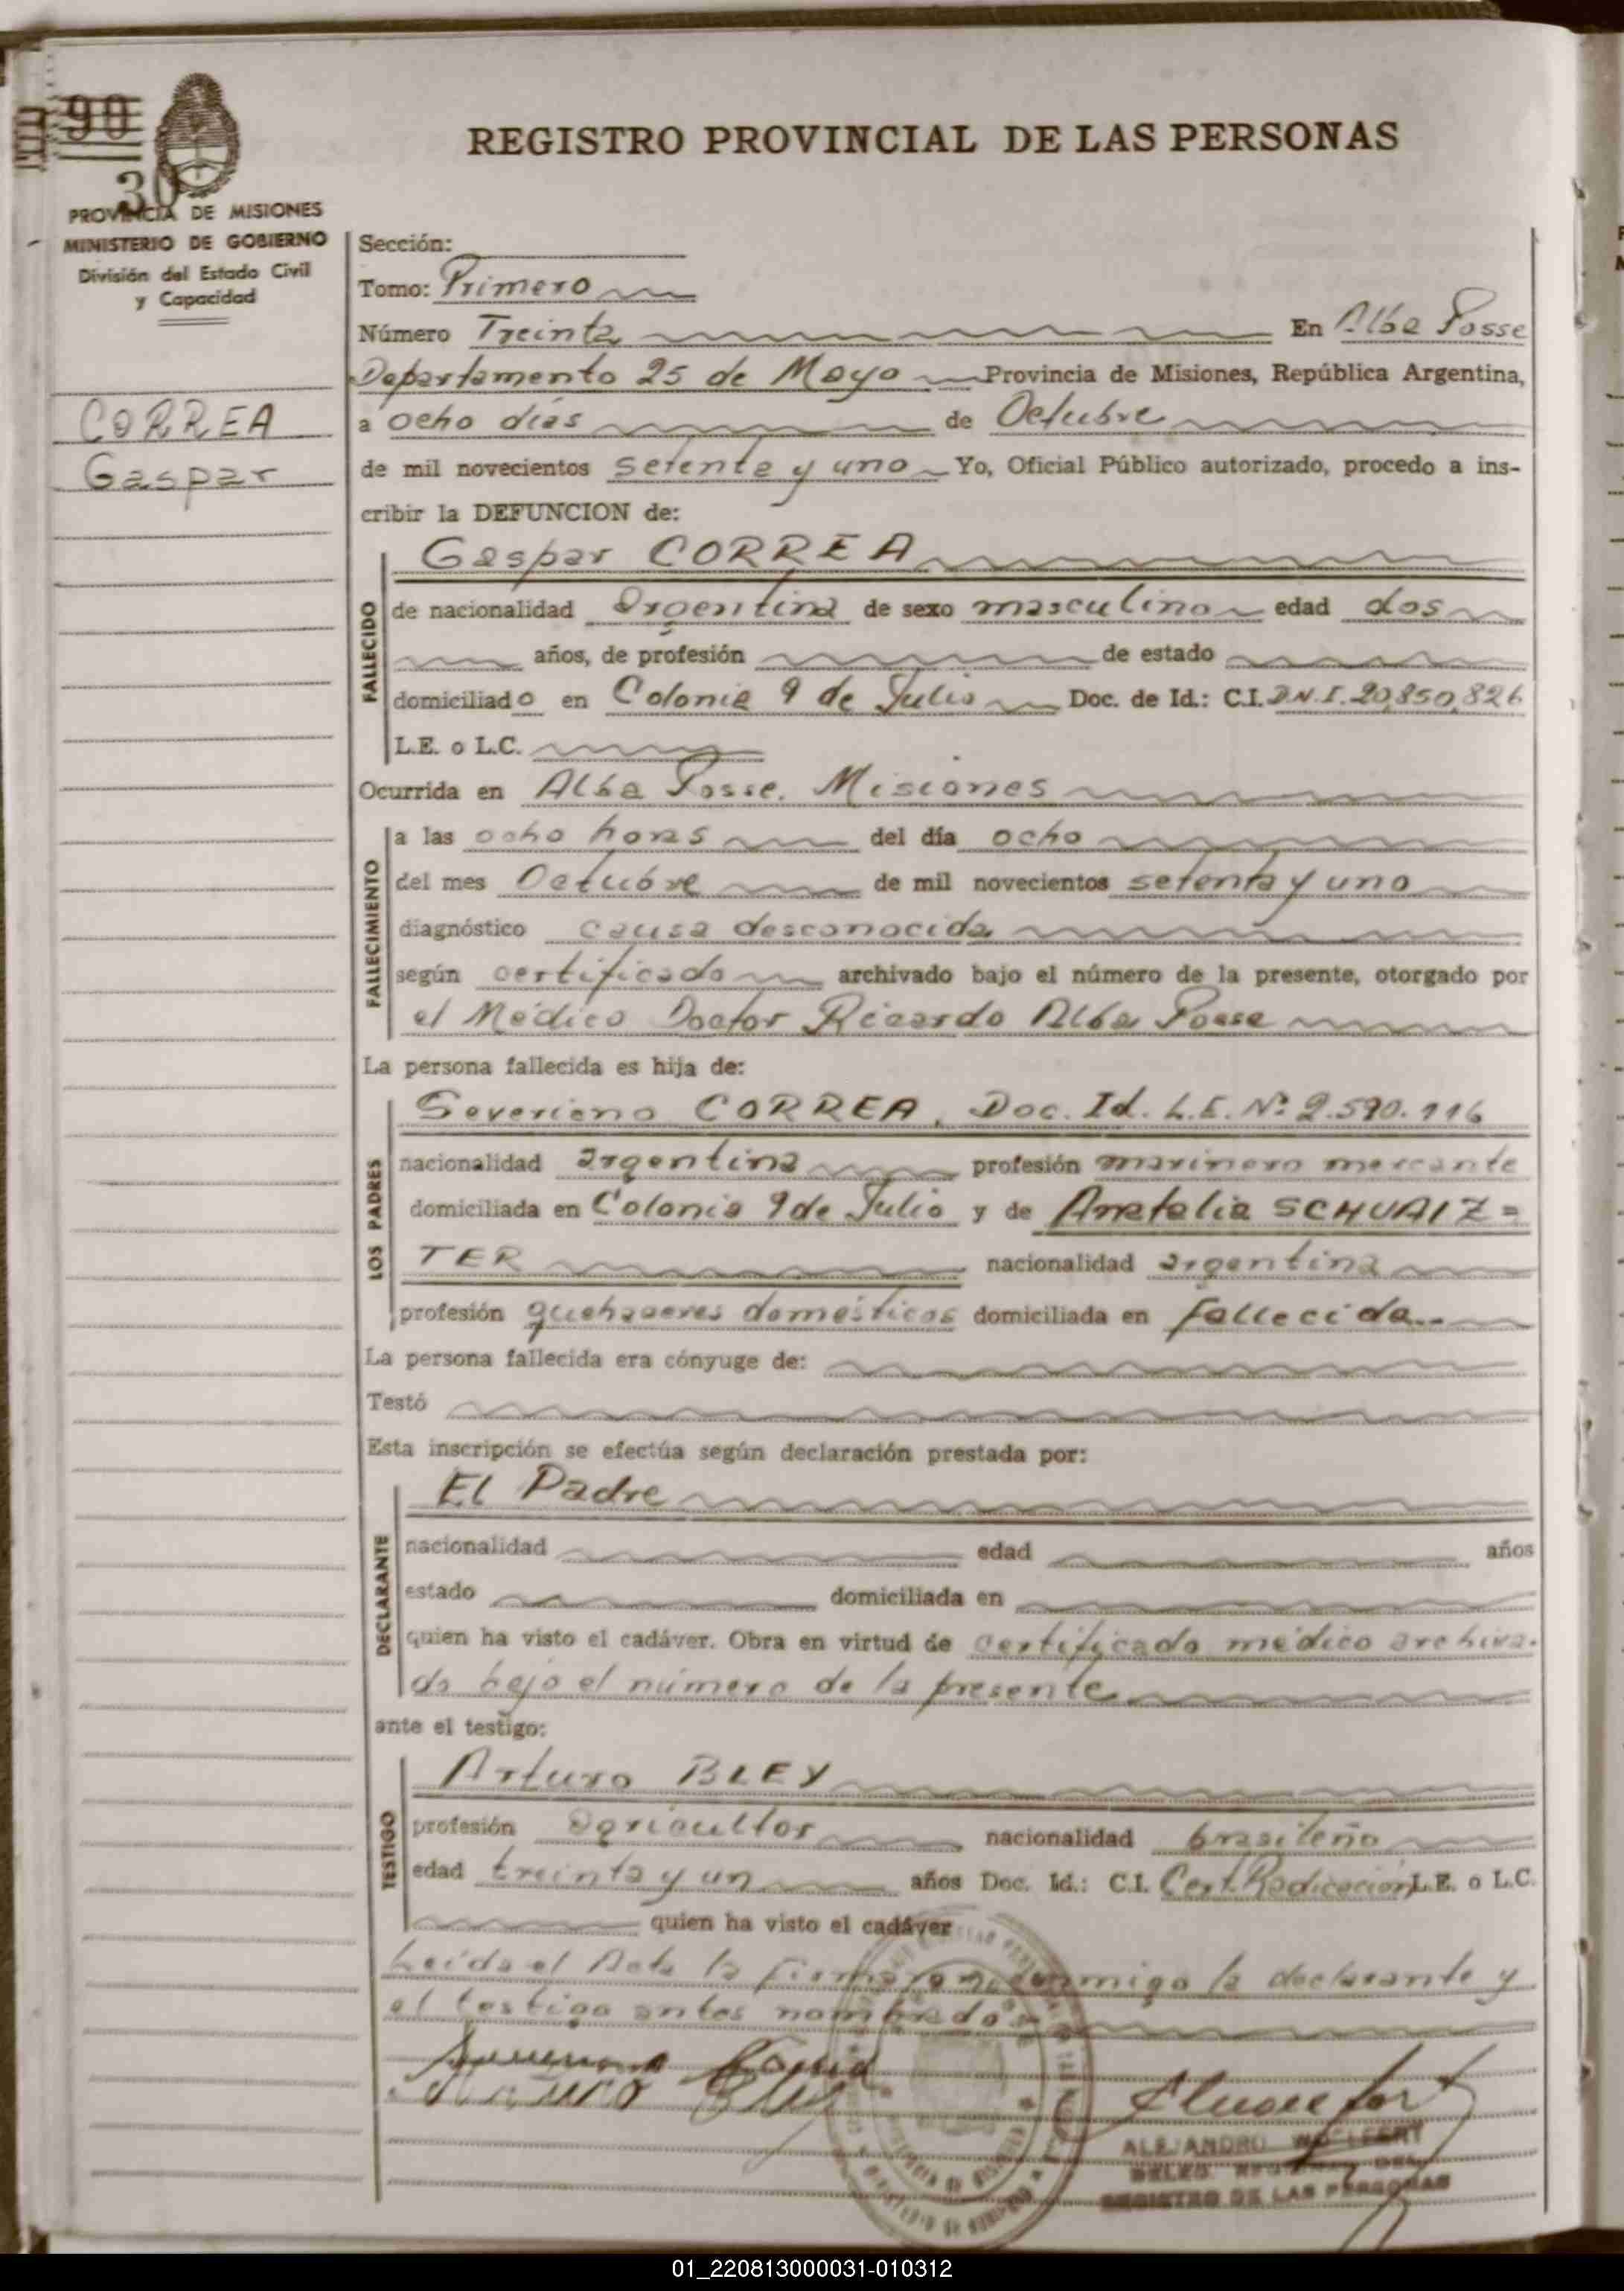 90
30
REGISTRO PROVINCIAL DE LAS PERSONAS
PROVINCIA DE MISIONES
MINISTERIO DE GOBIERNO
División del Estado Civil
y Capacidad
CORREA
Gaspar
Sección:
Tomo: Primero
Número Treinta En Alba Posse
Departamento 25 de Mayo Provincia de Misiones, República Argentina,
a ocho días de Octubre
de mil novecientos setenta y uno Yo, Oficial Público autorizado, procedo a ins-
cribir la DEFUNCION de:
FALLECIDO
Gaspar CORREA
de nacionalidad argentina de sexo masculino edad dos
años, de profesión de estado
domiciliado en Colonia 9 de Julio Doc. de Id.: C.I. D.N.I. 20,850,826
L.E. o L.C.
Ocurrida en Alba Posse. Misiones
FALLECIMIENTO
a las ocho horas del día ocho
del mes Octubre de mil novecientos setenta y uno
diagnóstico causa desconocida
según certificado archivado bajo el número de la presente, otorgado por
el Médico Doctor Ricardo Alba Posse
La persona fallecida es hija de:
LOS PADRES
Severiano CORREA, Doc. Id. L.E. Nº 2.590.116
nacionalidad argentina profesión marinero mercante
domiciliada en Colonia 9 de Julio y de Anatalia SCHUAIZ=
TER nacionalidad argentina
profesión quehaceres domésticos domiciliada en fallecida..
La persona fallecida era cónyuge de:
Testó
Esta inscripción se efectúa según declaración prestada por:
DECLARANTE
El Padre
nacionalidad edad años
estado domiciliada en
quien ha visto el cadáver. Obra en virtud de certificado médico archiva-
do bajo el número de la presente
ante el testigo:
TESTIGO
Arturo BLEY
profesión agricultor nacionalidad brasileño
edad treinta y un años Doc. Id.: C.I. Cert. Radicación L.E. o L.C.
quien ha visto el cadáver
Leída el Acta la firmaron conmigo la declarante y
el testigo antes nombrado
ALEJANDRO
REGISTRO DE LAS PERSONAS
01_220813000031-010312